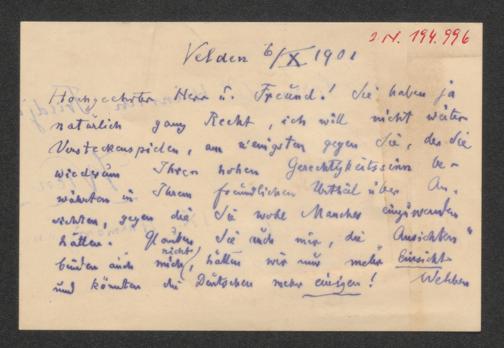 J.N. 194.996
Velden 6/X 1901
Hochgeehrter Herr u. Freund! Sie haben ja
natürlich ganz Recht, ich will nicht weiter
Versteckenspielen, am wenigsten gegen Sie, der Sie
wiederum Ihren hohen Gerechtigkeitssinn be-
wahrten in Ihrem freundlichen Urtheil über An-
sichten, gegen die Sie wohl Manches einzuwenden
hätten. Glauben Sie auch mir, die "Ansichten"
binden auch mich nicht, hätten wir nur mehr Einsicht
und könnten die Deutschen mehr einigen!